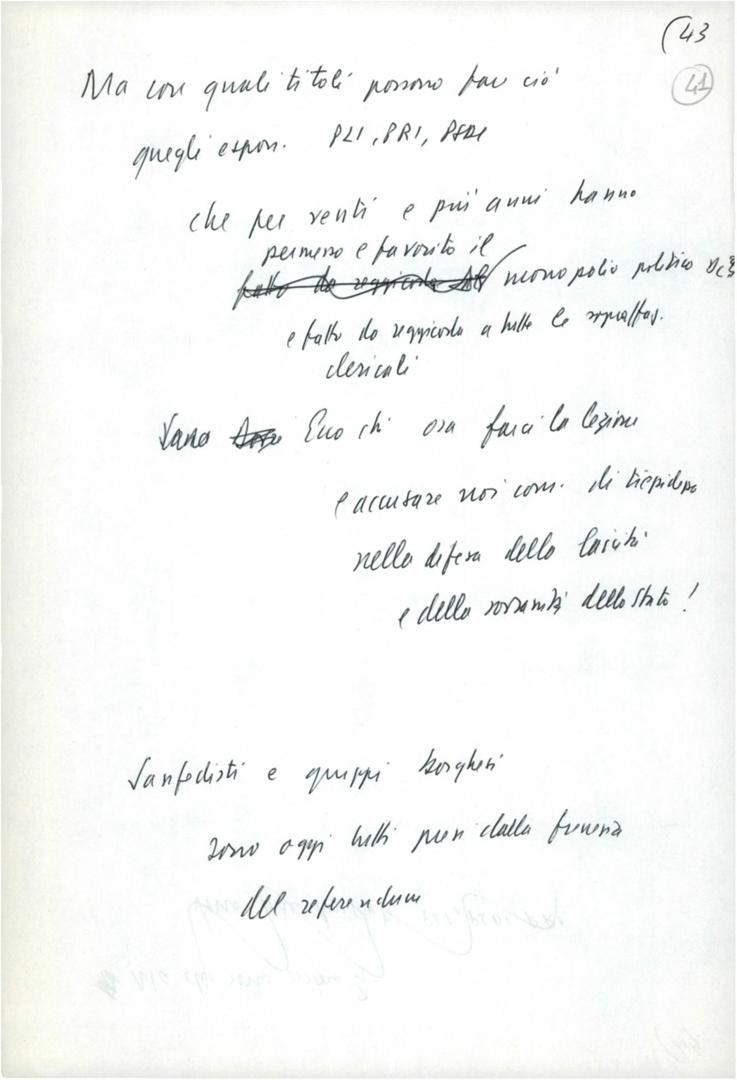 (43
41
Ma con quali titoli possono far ciò
quegli espon. PLI, PRI, PSDI
che per venti e più anni hanno
permesso e favorito il
fatto da reggicoda al monopolio politico DC
e fatto da reggicoda a tutte le sopraffaz.
clericali
Ecco chi osa farci la lezione
e accusare noi com. di tiepidezza
nella difesa della laicità
e della sovranità dello stato!
Sanfedisti e gruppi borghesi
sono oggi tutti presi dalla frenesia
del referendum